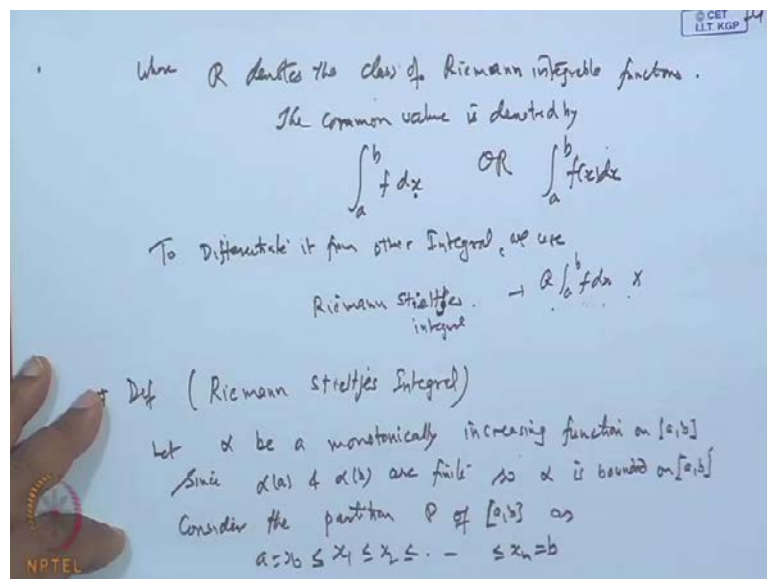 © CET
I.I.T. KGP
Where R denotes the class of Riemann integrable functions.
The common value is denoted by
∫_a^b f dx OR ∫_a^b f(x)dx
To Differentiate it from other Integral, we use
Riemann Stieltjes → R ∫_a^b f dx x
integral
Def (Riemann Stieltjes Integral)
Let α be a monotonically increasing function on [a,b]
Since α(a) & α(b) are finite so α is bounded on [a,b]
Consider the partition P of [a,b] as
a=x₀ ≤ x₁ ≤ x₂ ≤ . . – ≤ xₙ=b
NPTEL